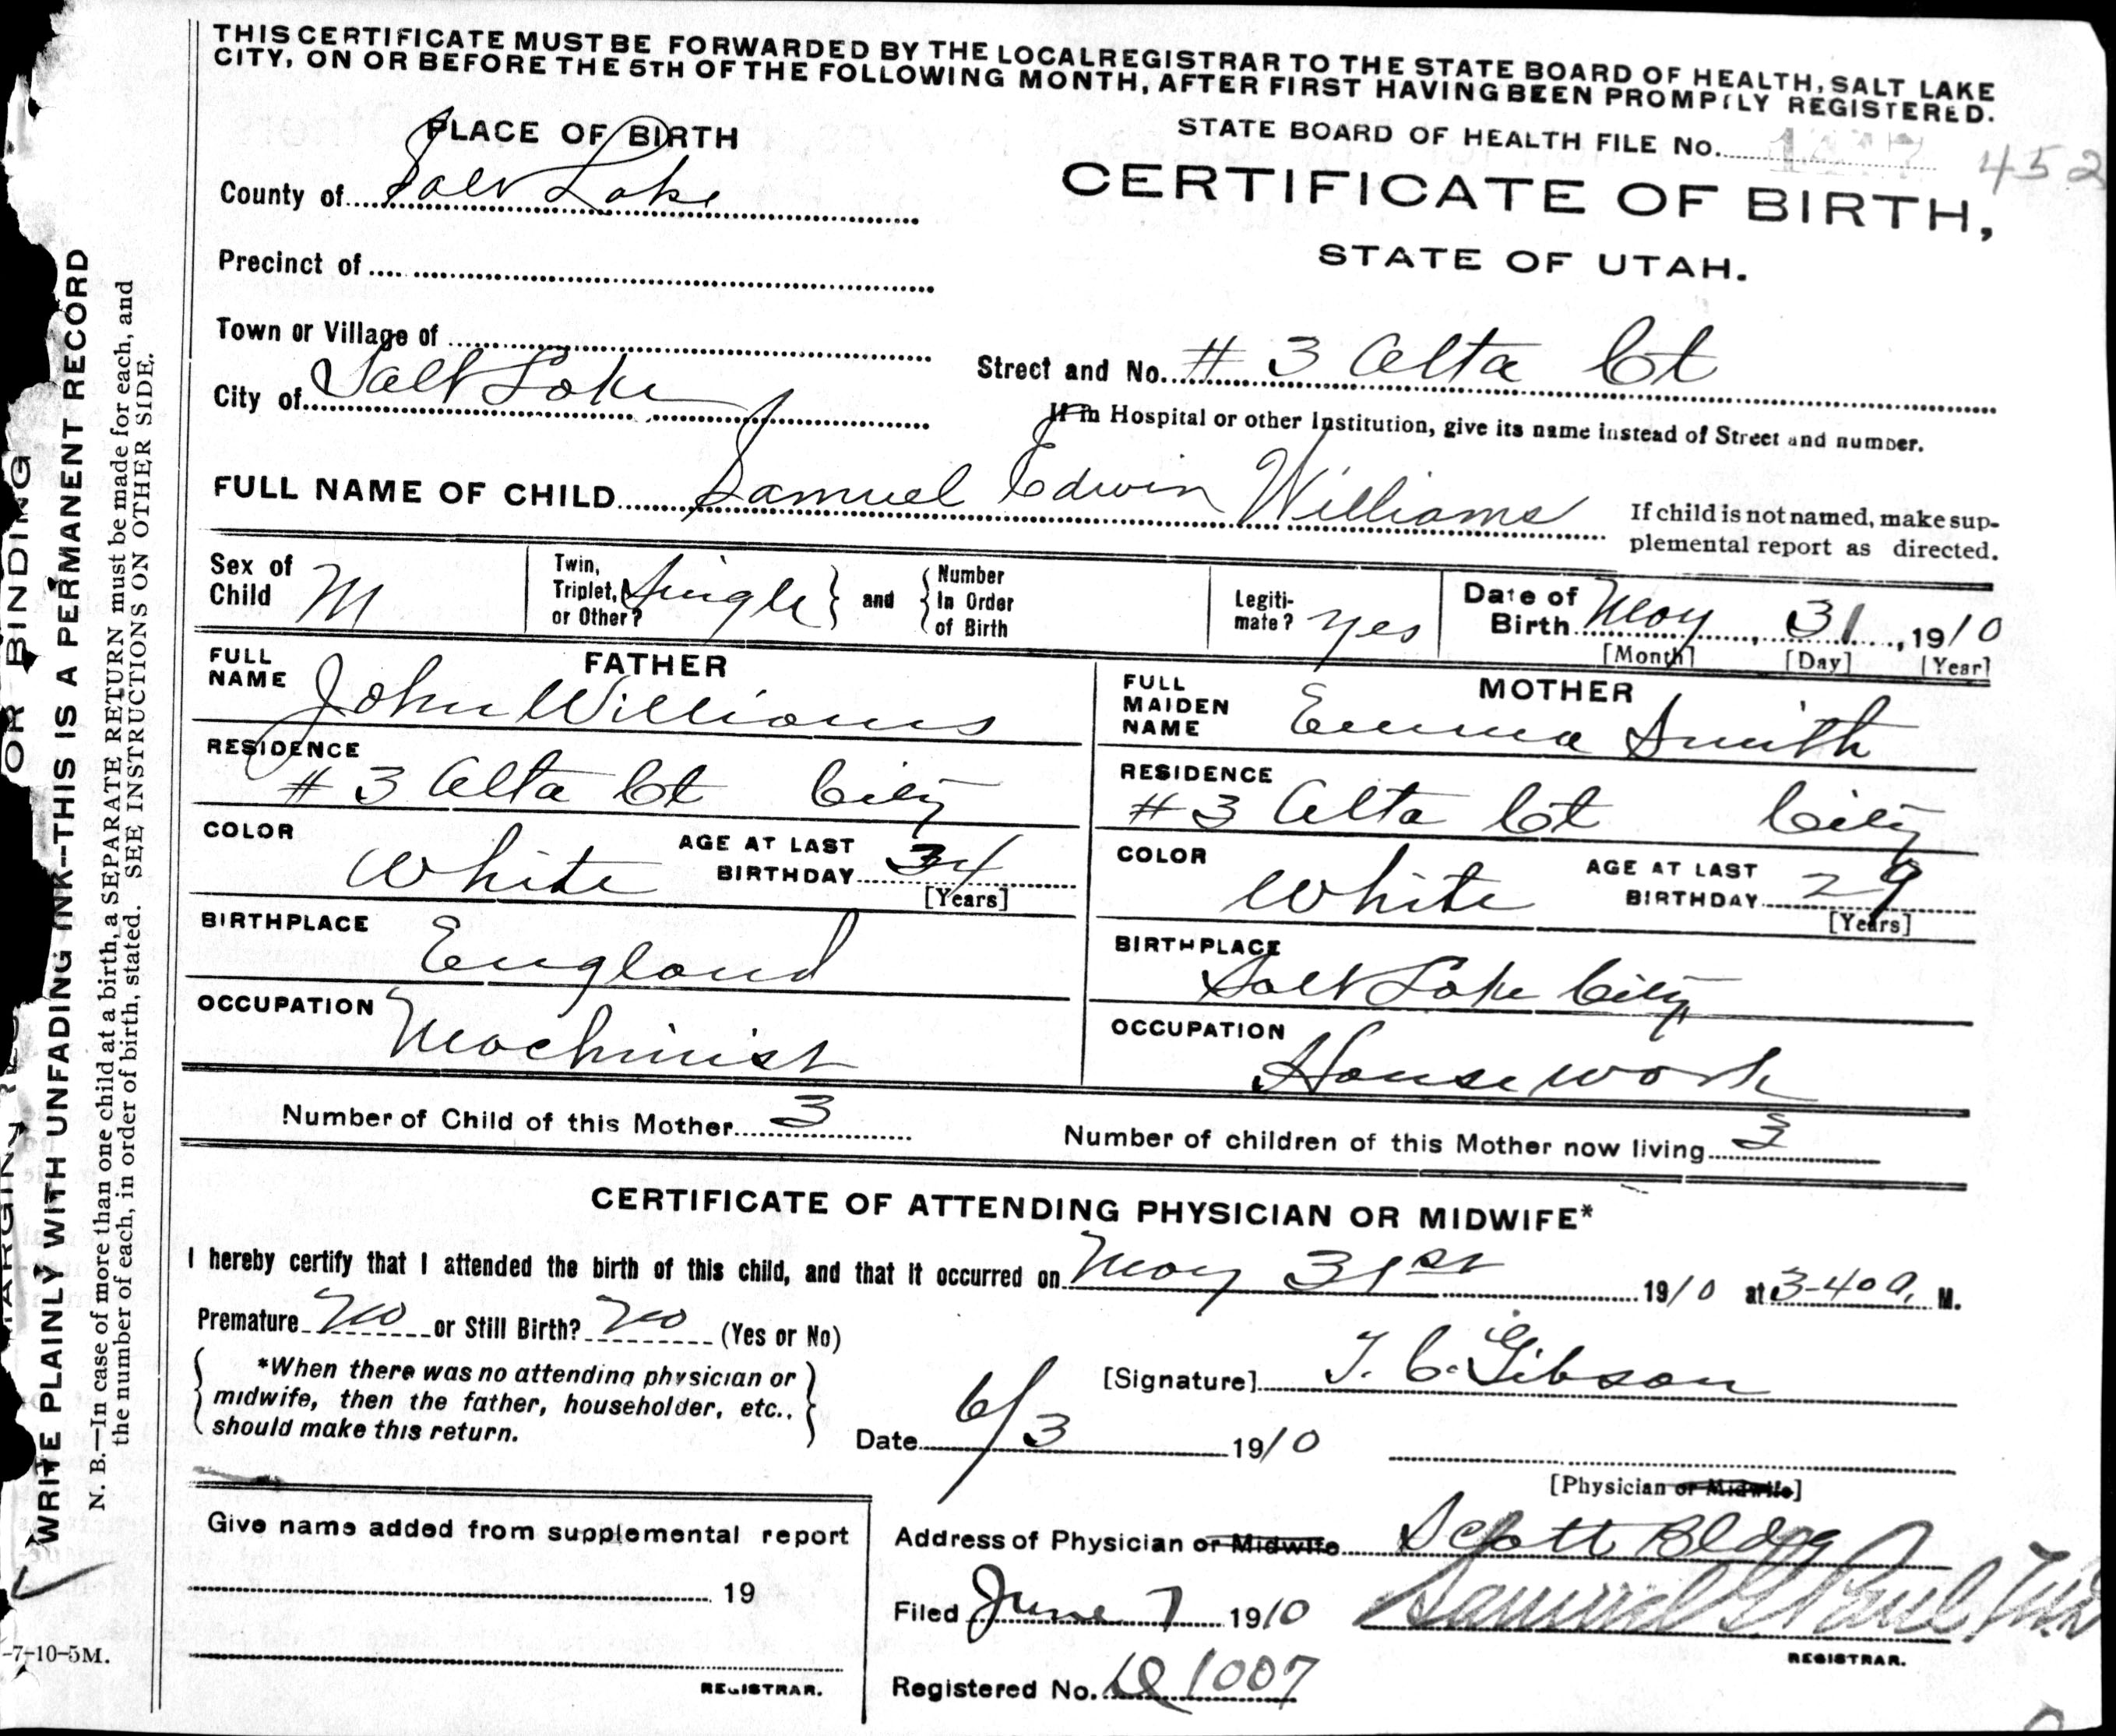 THIS CERTIFICATE MUST BE FORWARDED BY THE LOCAL REGISTRAR TO THE STATE BOARD OF HEALTH, SALT LAKE
CITY, ON OR BEFORE THE 5TH OF THE FOLLOWING MONTH, AFTER FIRST HAVING BEEN PROMPTLY REGISTERED.
PLACE OF BIRTH
County of Salt Lake
Precinct of
Town or Village of
City of Salt Lake
STATE BOARD OF HEALTH FILE No. 452
CERTIFICATE OF BIRTH,
STATE OF UTAH.
Street and No. # 3 Alta Ct
If in Hospital or other Institution, give its name instead of Street and number.
FULL NAME OF CHILD Samuel Edwin Williams
If child is not named, make sup-
plemental report as directed.
Sex of Child M
Twin, Triplet, or Other? Single } and { Number In Order of Birth
Legiti-mate? yes
Date of Birth May, 31, 1910
[Month] [Day] [Year]
FATHER
FULL NAME John Williams
RESIDENCE
# 3 Alta Ct City
COLOR White AGE AT LAST BIRTHDAY 34
[Years]
BIRTHPLACE England
OCCUPATION Machinist
MOTHER
FULL MAIDEN NAME Emma Smith
RESIDENCE
# 3 Alta Ct City
COLOR White AGE AT LAST BIRTHDAY 29
[Years]
BIRTHPLACE
Salt Lake City
OCCUPATION
House work
Number of Child of this Mother 3
Number of children of this Mother now living 3
CERTIFICATE OF ATTENDING PHYSICIAN OR MIDWIFE*
I hereby certify that I attended the birth of this child, and that it occurred on May 31st 1910 at 3-40 a. M.
Premature no or Still Birth? no (Yes or No)
*When there was no attending physician or
midwife, then the father, householder, etc.,
should make this return.
[Signature] T. C. Gibson
Date 6/3 1910
[Physician or Midwife]
Give name added from supplemental report
19
REGISTRAR.
Address of Physician or Midwife Scott Bldg
Filed June 7 1910 Samuel G Paul, M.D
REGISTRAR.
Registered No. 1007
OR BINDING
WRITE PLAINLY WITH UNFADING INK--THIS IS A PERMANENT RECORD
N. B.—In case of more than one child at a birth, a SEPARATE RETURN must be made for each, and
the number of each, in order of birth, stated. SEE INSTRUCTIONS ON OTHER SIDE.
-7-10-5M.